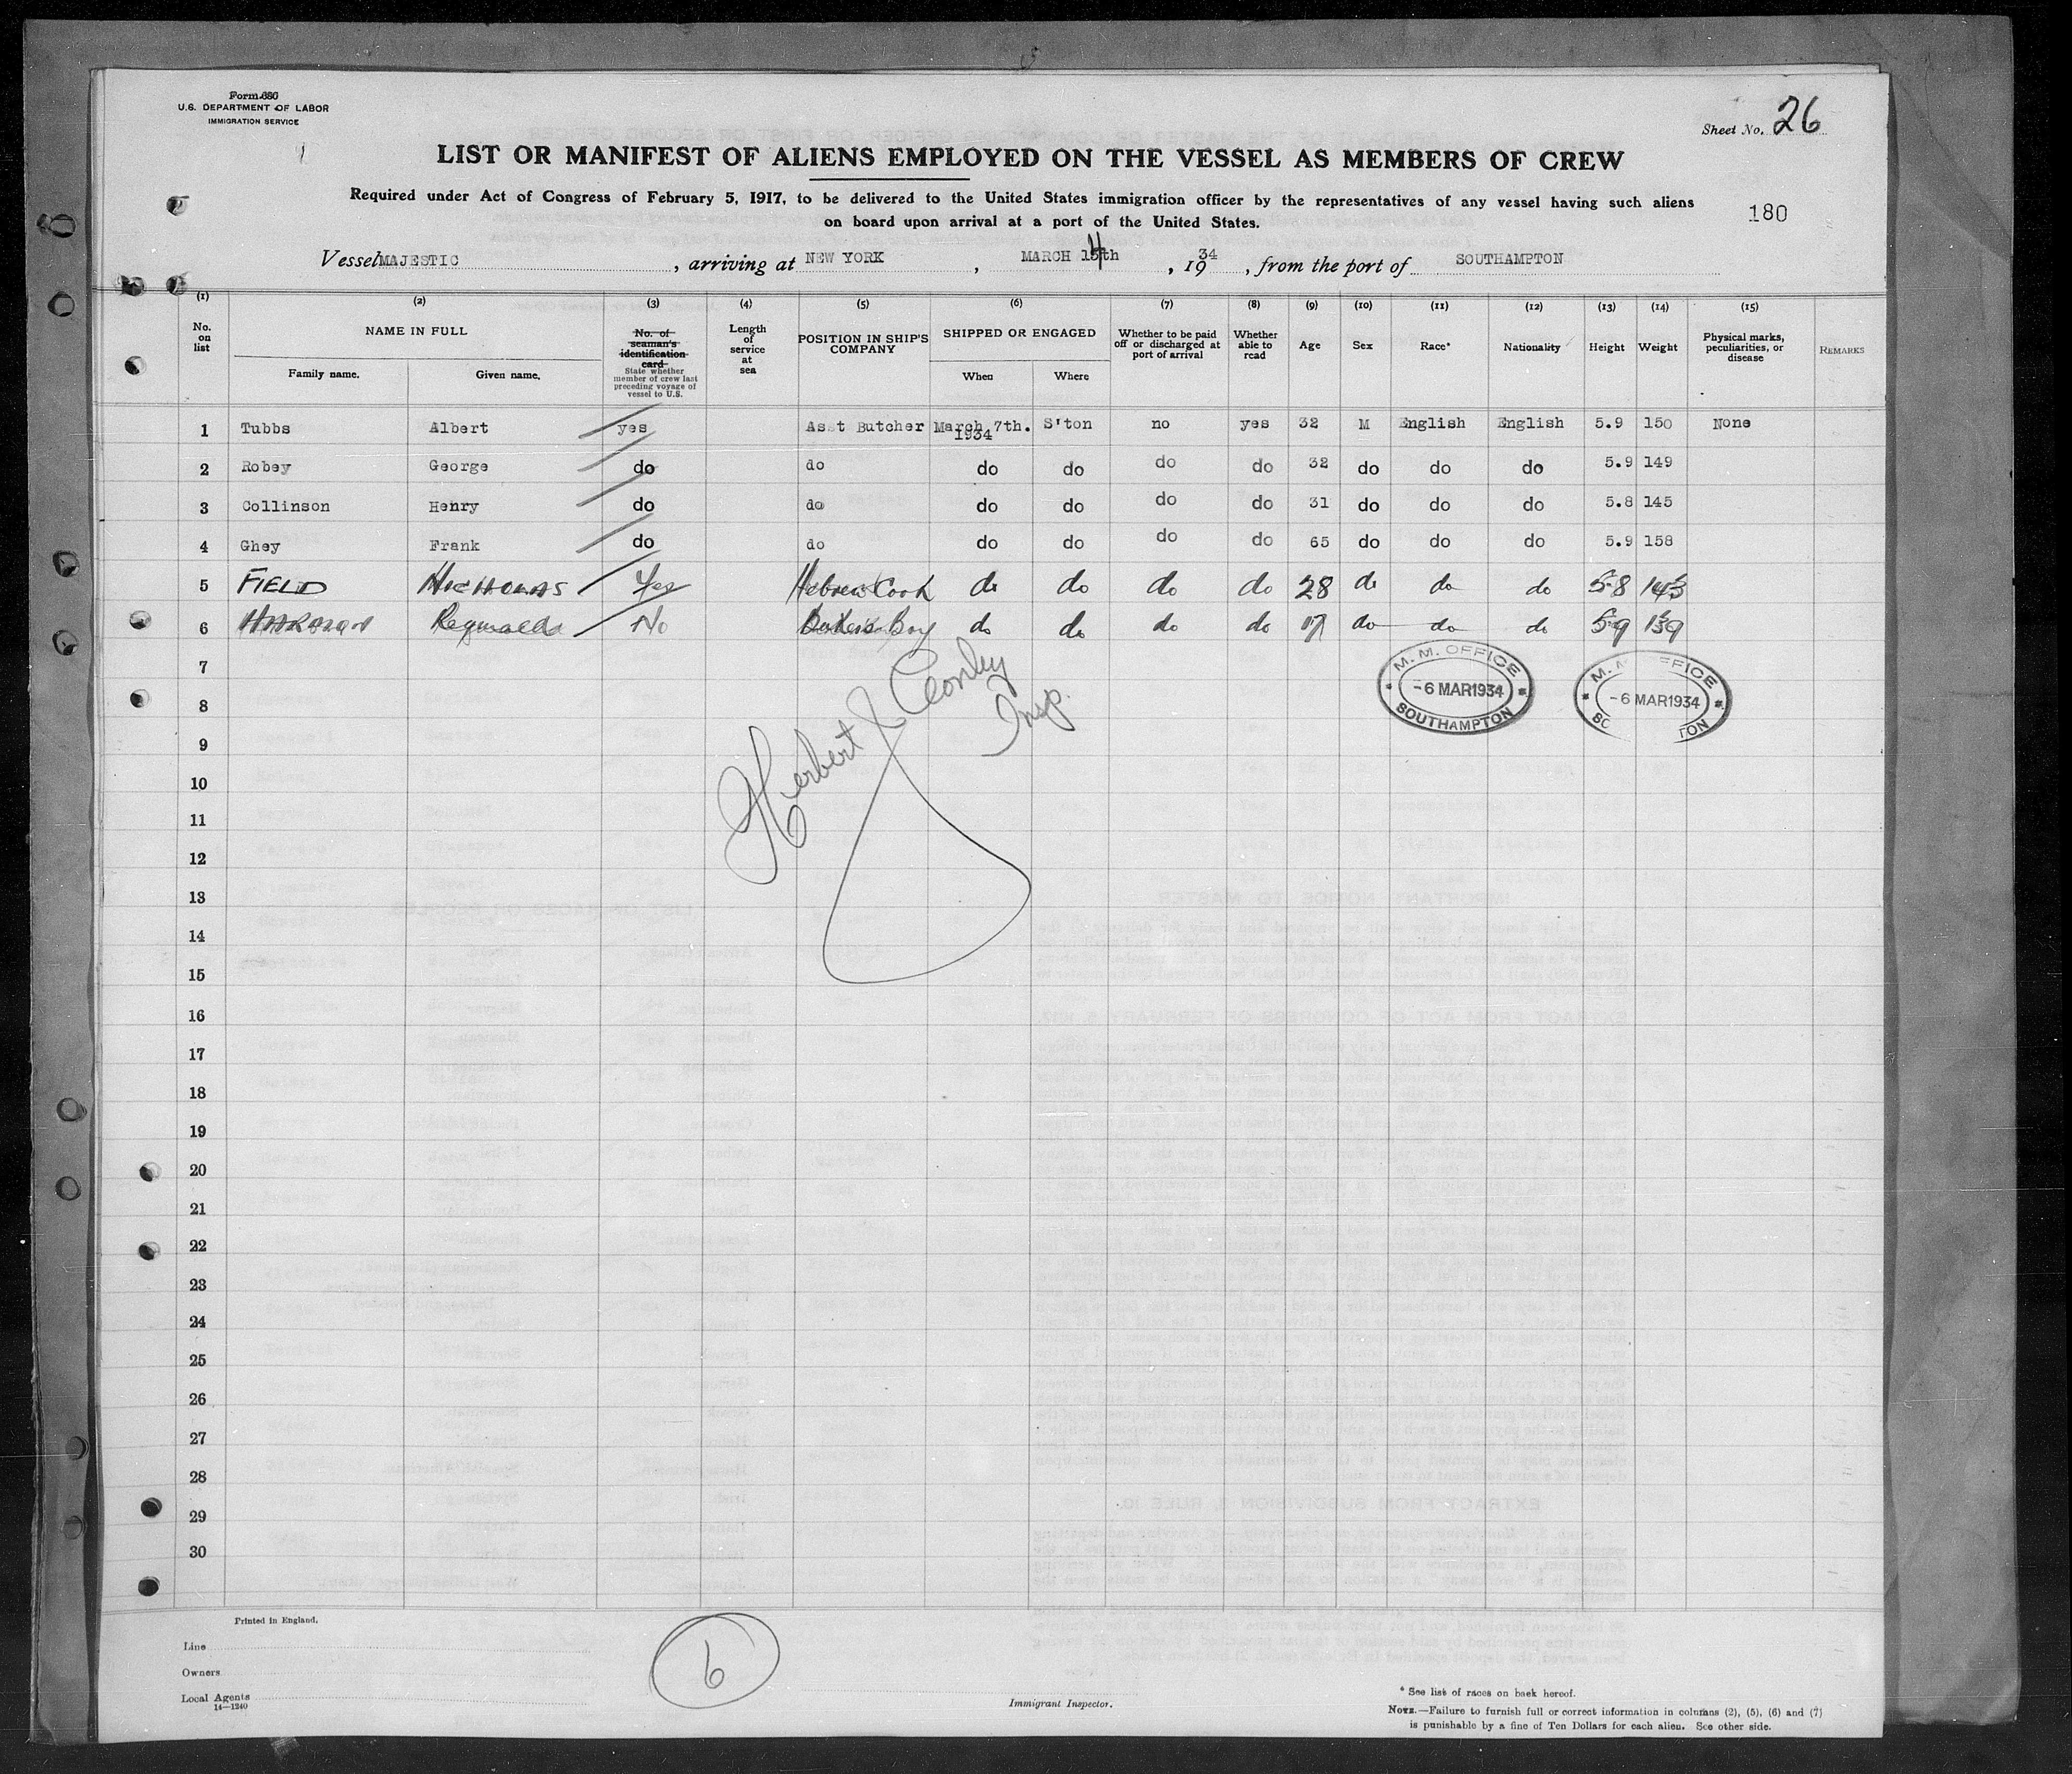 Form 680
U.S. DEPARTMENT OF LABOR
IMMIGRATION SERVICE
Sheet No. 26
LIST OR MANIFEST OF ALIENS EMPLOYED ON THE VESSEL AS MEMBERS OF CREW
Required under Act of Congress of February 5, 1917, to be delivered to the United States immigration officer by the representatives of any vessel having such aliens
on board upon arrival at a port of the United States.
180
Vessel MAJESTIC, arriving at NEW YORK, MARCH 14th, 1934, from the port of SOUTHAMPTON
(1) (2) (3) (4) (5) (6) (7) (8) (9) (10) (11) (12) (13) (14) (15)
No. on list NAME IN FULL Family name. Given name. No. of seaman's identification card State whether member of crew last preceding voyage of vessel to U.S. Length of service at sea POSITION IN SHIP'S COMPANY SHIPPED OR ENGAGED When Where Whether to be paid off or discharged at port of arrival Whether able to read Age Sex Race* Nationality Height Weight Physical marks, peculiarities, or disease REMARKS
1 Tubbs Albert yes Asst Butcher March 7th. 1934 S'ton no yes 32 M English English 5.9 150 None
2 Robey George do do do do do do 32 do do do 5.9 149
3 Collinson Henry do do do do do do 31 do do do 5.8 145
4 Ghey Frank do do do do do do 65 do do do 5.9 158
5 FIELD NICHOLAS Yes Hebrew Cook do do do do 28 do do do 5-8 143
6 Reginald No Bakers Boy do do do do 17 do do do 5-9 139
M. M. OFFICE
-6 MAR 1934
SOUTHAMPTON
M. M. OFFICE
-6 MAR 1934
SO TON
Herbert J Conley
Insp.
7
8
9
10
11
12
13
14
15
16
17
18
19
20
21
22
23
24
25
26
27
28
29
30
Printed in England.
Line
Owners
Local Agents
14—1240
6
Immigrant Inspector.
* See list of races on back hereof.
NOTE.—Failure to furnish full or correct information in columns (2), (5), (6) and (7)
is punishable by a fine of Ten Dollars for each alien. See other side.